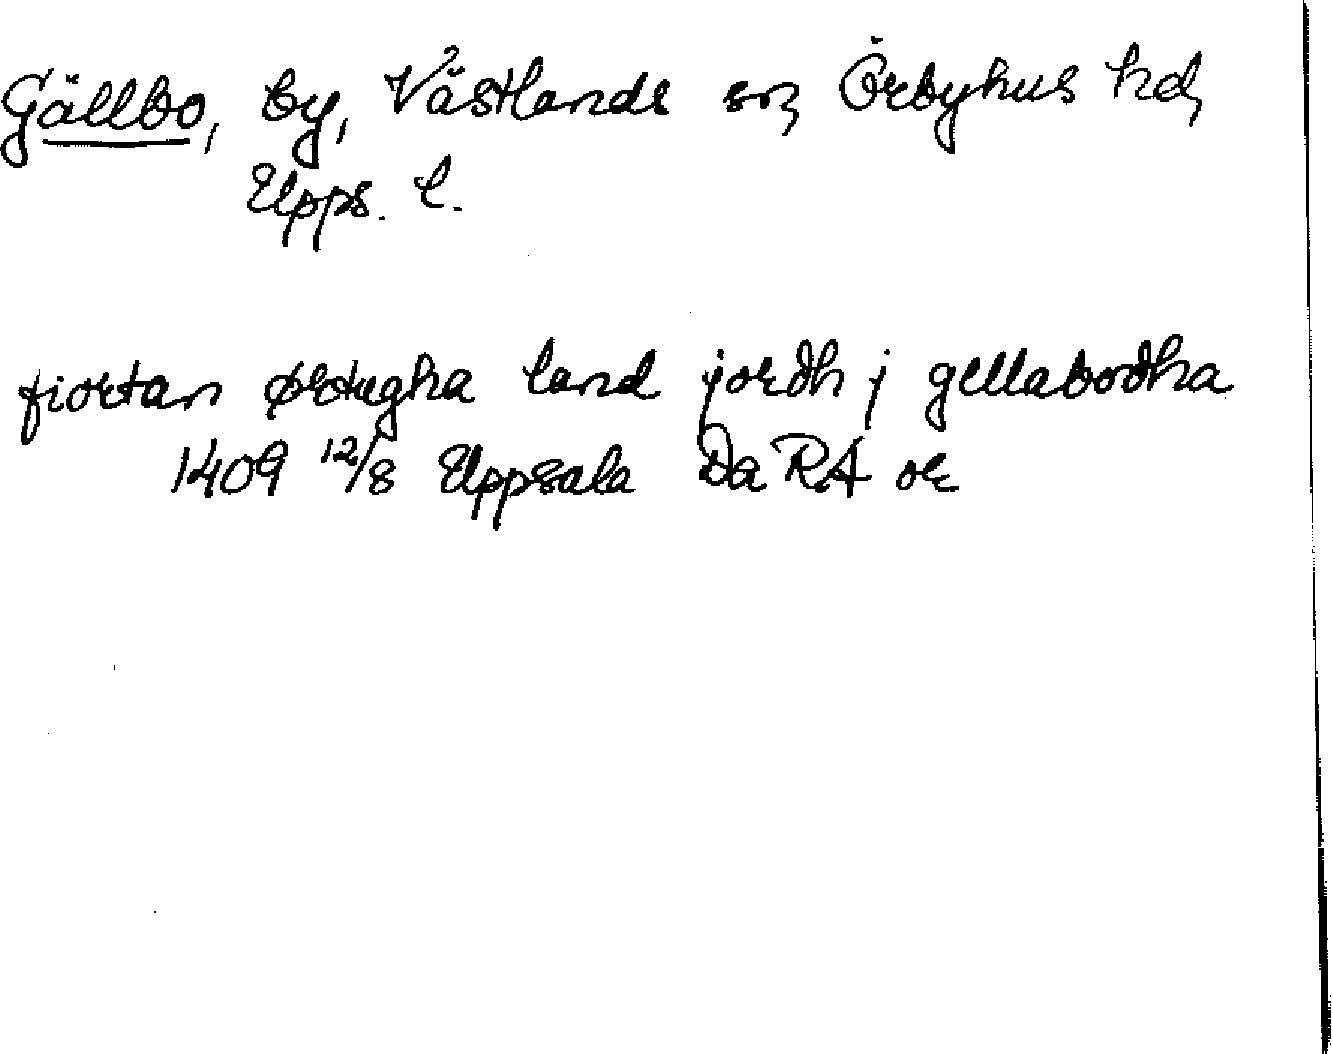 Gällbo, by, Västlands sn, Örbyhus hd,
Upps. l.
fiortan ørtugha land jordh j gellabodha
1409 12/8 Uppsala Da RA or